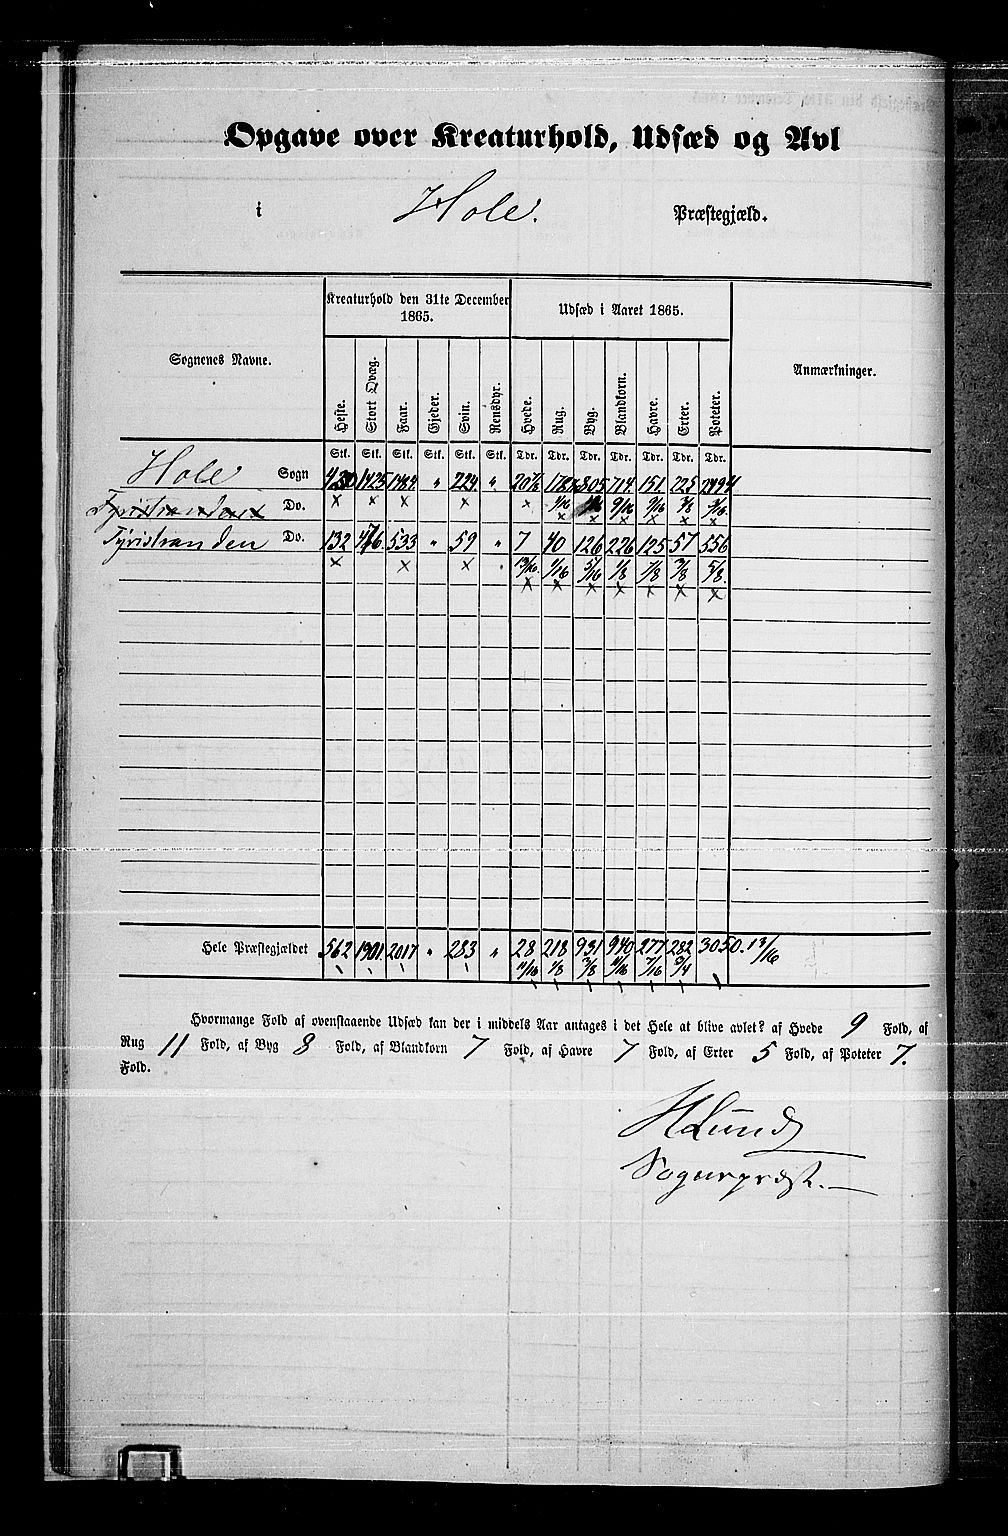 Opgave over Kreaturhold, Udsæd og Avl
i Hole. Præstegjæld.
Sognenes Navne. Kreaturhold den 31te December 1865. Udsæd i Aaret 1865. Anmærkninger.
Heste. Stort Qvæg. Faar. Gjeder. Svin. Rensdyr. Hvede. Rug. Byg. Blandkorn. Havre. Erter. Poteter.
Stk. Stk. Stk. Stk. Stk. Stk. Tdr. Tdr. Tdr. Tdr. Tdr. Tdr. Tdr.
Hole Sogn 430 1425 1484 " 224 " 20 7/8 178 805 714 151 225 2494
Tyristranden Do. x x x x x 1/16 9/16 9/16 3/8 3/16
Tyristranden Do. 132 476 533 " 59 " 7 40 126 226 125 57 556
x x x 13/16 1/16 5/16 1/8 7/8 3/8 5/8
x x x x x x x
Hele Præstegjældet 562 1901 2017 " 283 " 28 218 931 940 277 282 3050. 13/16
11/16 1/8 3/8 11/16 7/16 3/4
Hvormange Fold af ovenstaaende Udsæd kan der i middels Aar antages i det Hele at blive avlet? af Hvede 9 Fold, af
Rug 11 Fold, af Byg 8 Fold, af Blandkorn 7 Fold, af Havre 7 Fold, af Erter 5 Fold, af Poteter 7.
Fold.
H Lund
Sognepræst.